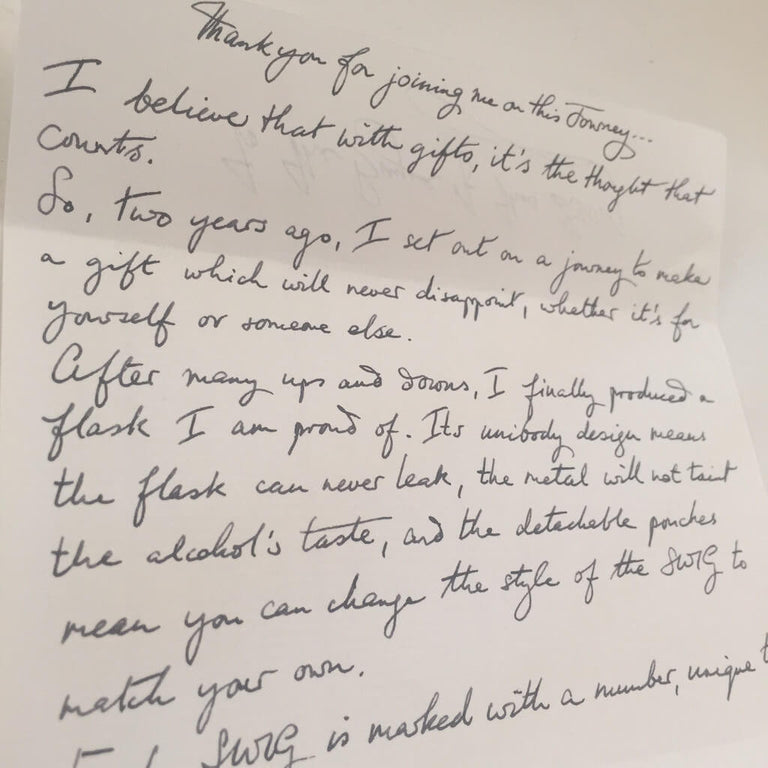 Thank you for joining me on this Journey...
I believe that with gifts, it's the thought that
counts.
So, two years ago, I set out on a journey to make
a gift which will never disappoint, whether it's for
yourself or someone else.
After many ups and downs, I finally produced a
flask I am proud of. Its unibody design means
the flask can never leak, the metal will not taint
the alcohol's taste, and the detachable pouches
mean you can change the style of the SWIG to
match your own.
SWIG is marked with a number, unique